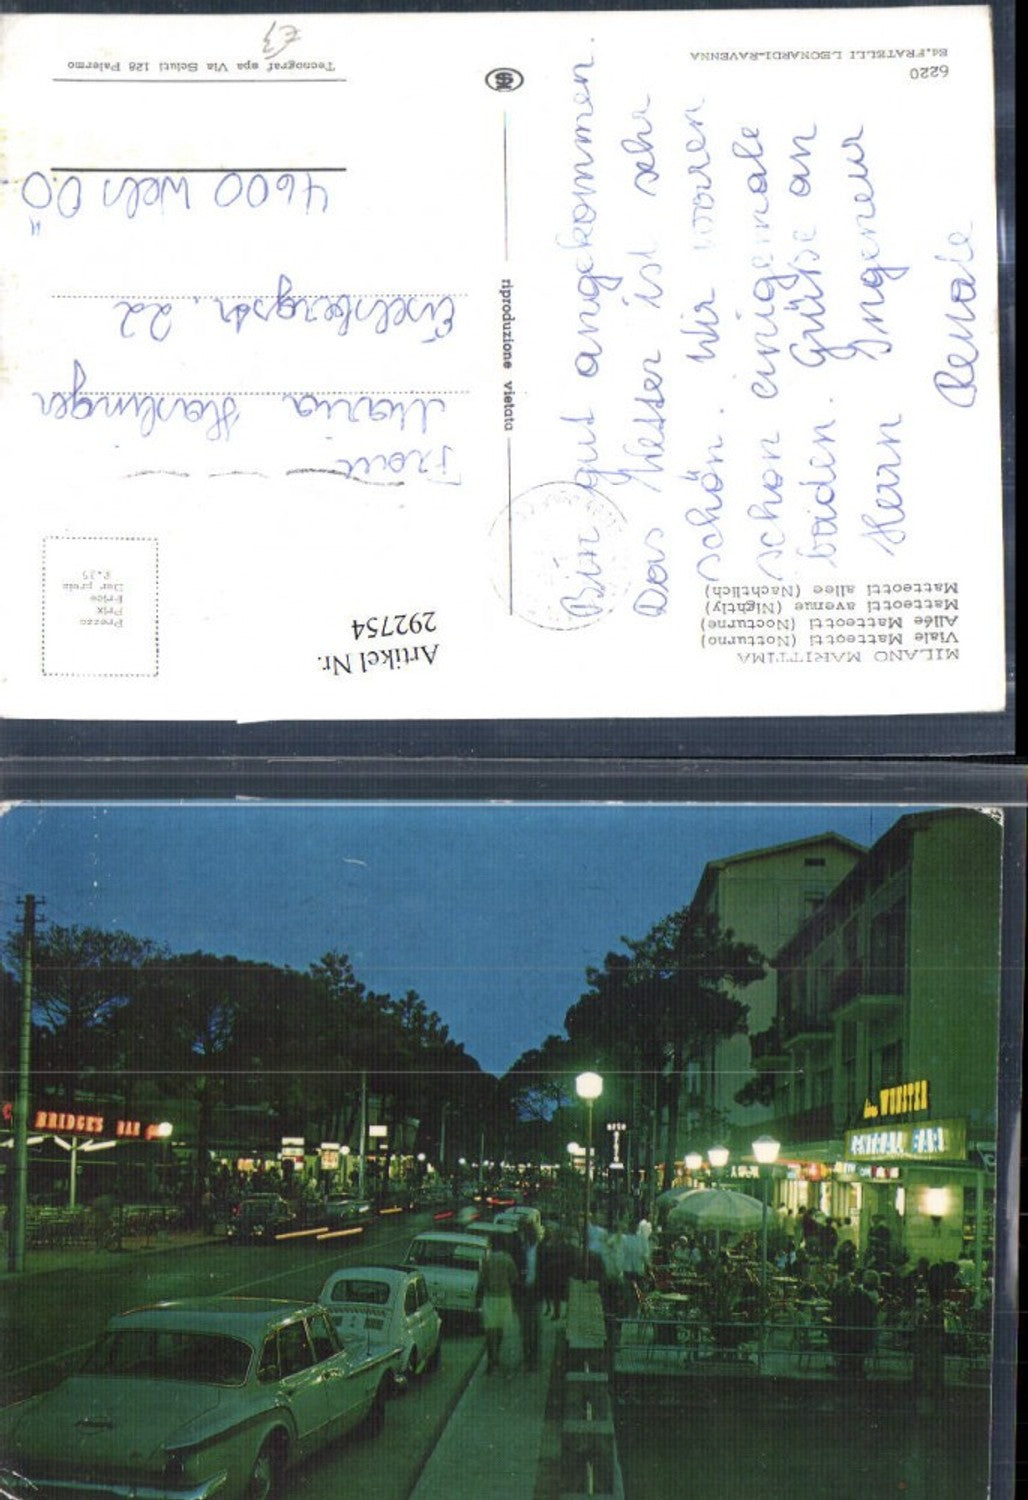 MILANO MARITTIMA
Viale Matteotti (Notturno)
Allée Matteotti (Nocturne)
Matteotti avenue (Nightly)
Matteotti allee (Nachtlich)
Bin gut angekommen.
Das Wetter ist sehr
schön. Wir waren
schon einigemale
baden. Grüße an
Herrn Ingeneur
Renate
6220
Ed. FRATELLI LEONARDI-RAVENNA
riproduzione vietata
Artikel Nr.
292754
Prezzo
Prix
Price
Der preis
£.35
Frau
Maria Haslinger
Eiselsbergstr. 22
4600 Wels OÖ
Tecnograf spa Via Sciuti 128 Palermo
€3
BRIDGE'S BAR
WÜRSTER
CENTRAL BAR